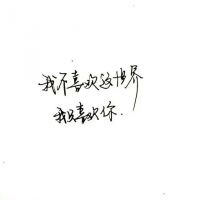 我不喜欢这世界
我只喜欢你.